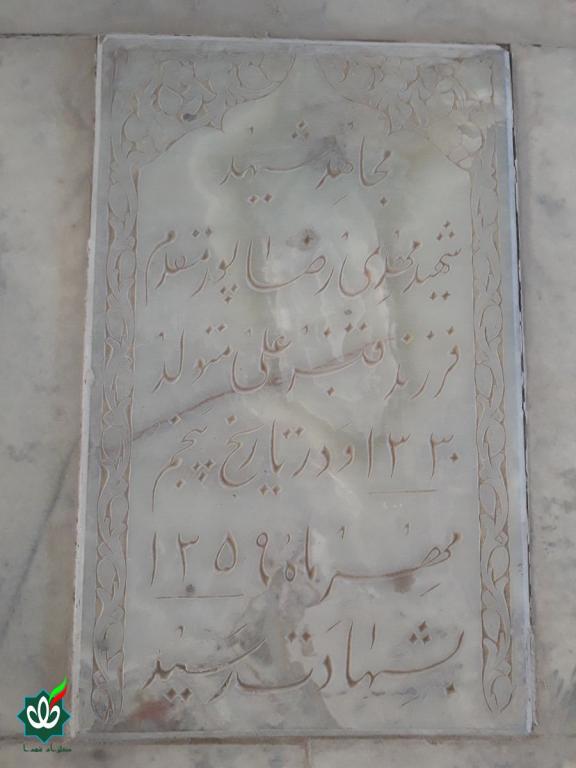 مجاهد شهید
شهید مهدی رضاپور متقدم
فرزند قنبر علی متولد
۱۳۳۰ و در تاریخ پنجم
مهر ماه ۱۳۵۹
بشهادت رسید